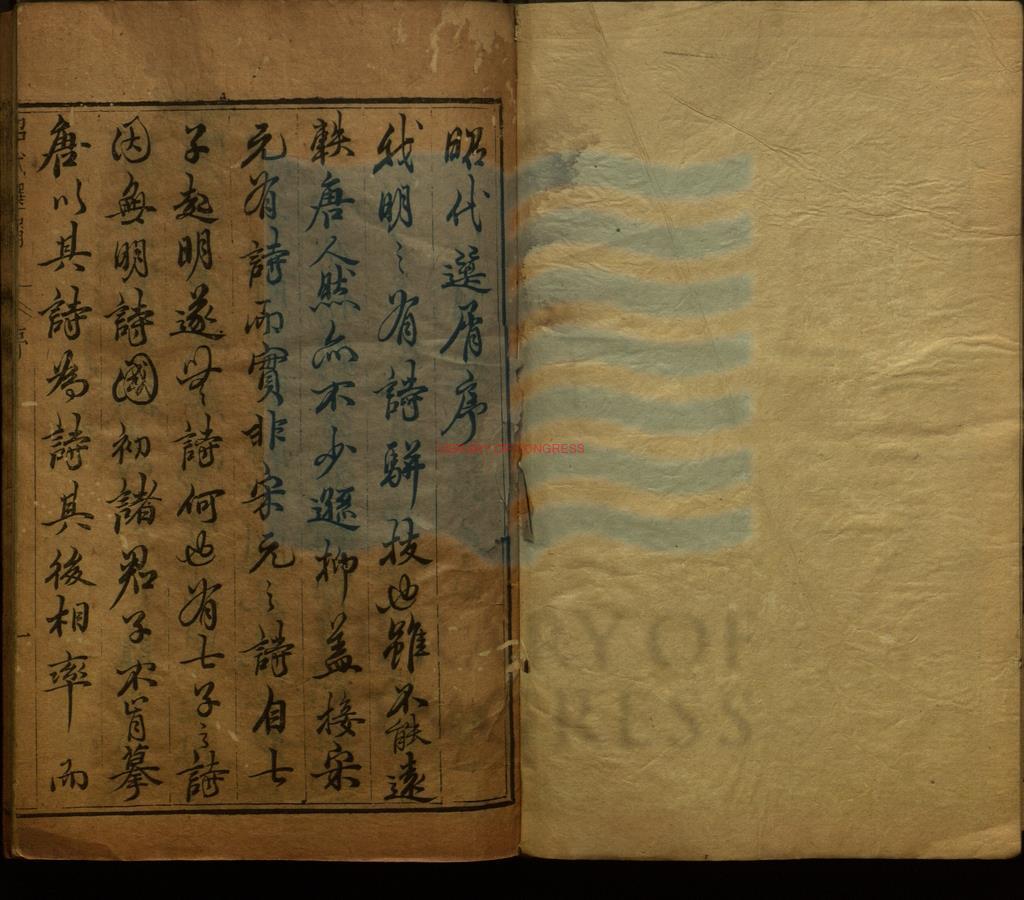 昭代選屑序
我明之有詩駢技也雖不能遠
軼唐人然亦不少遜抑蓋接宋
元有詩而實非宋元之詩自七
子起明遂無詩何也有七子之詩
因無明詩國初諸君子不肯摹
唐以其詩為詩其後相率而
昭代選屑
序
一
LIBRARY OF CONGRESS
RY OF
RESS